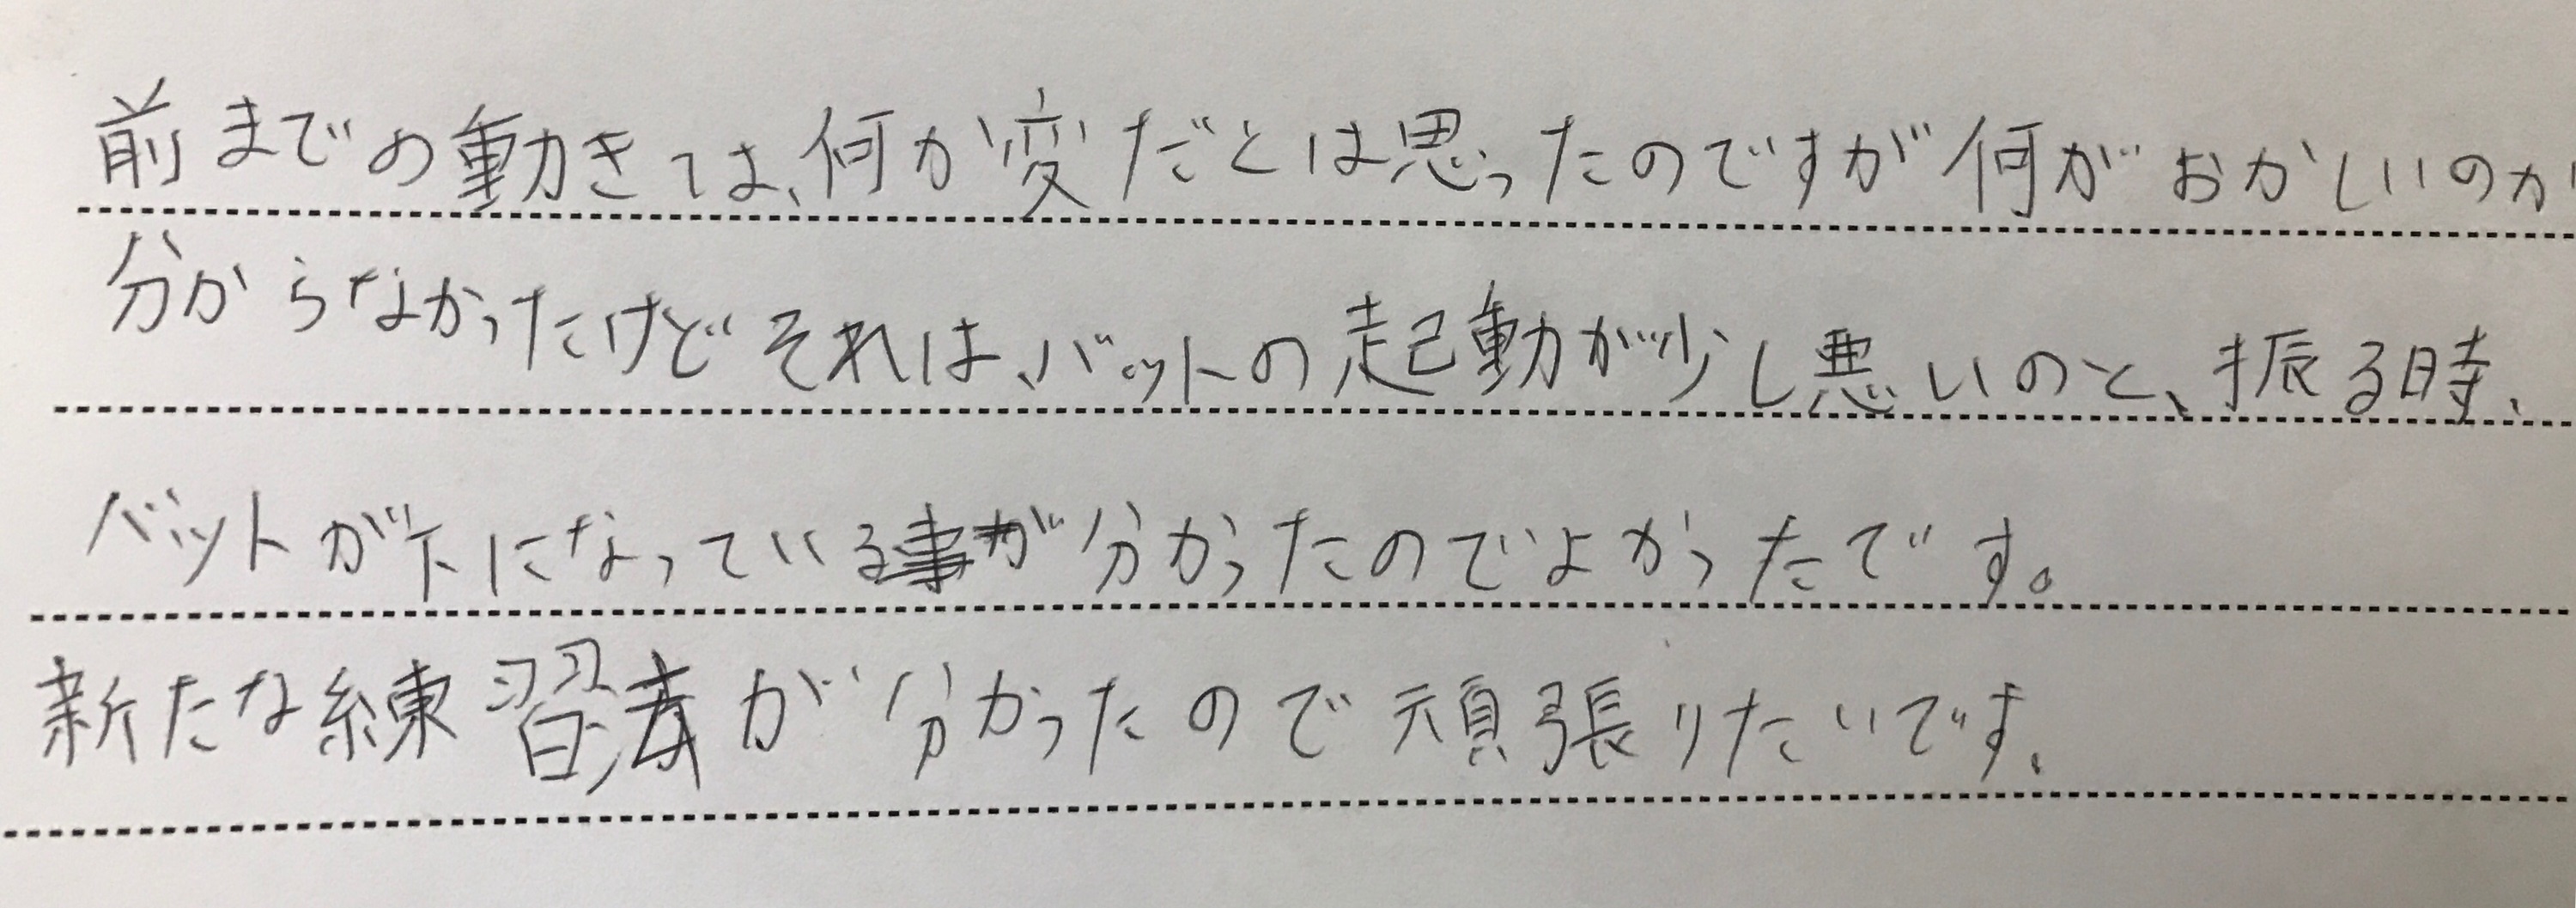 前までの動きは、何か変だとは思ったのですが何がおかしいのか
分からなかったけどそれは、バットの起動が少し悪いのと、振る時、
バットが下になっている事が分かったのでよかったです。
新たな練習法が分かったので頑張りたいです。